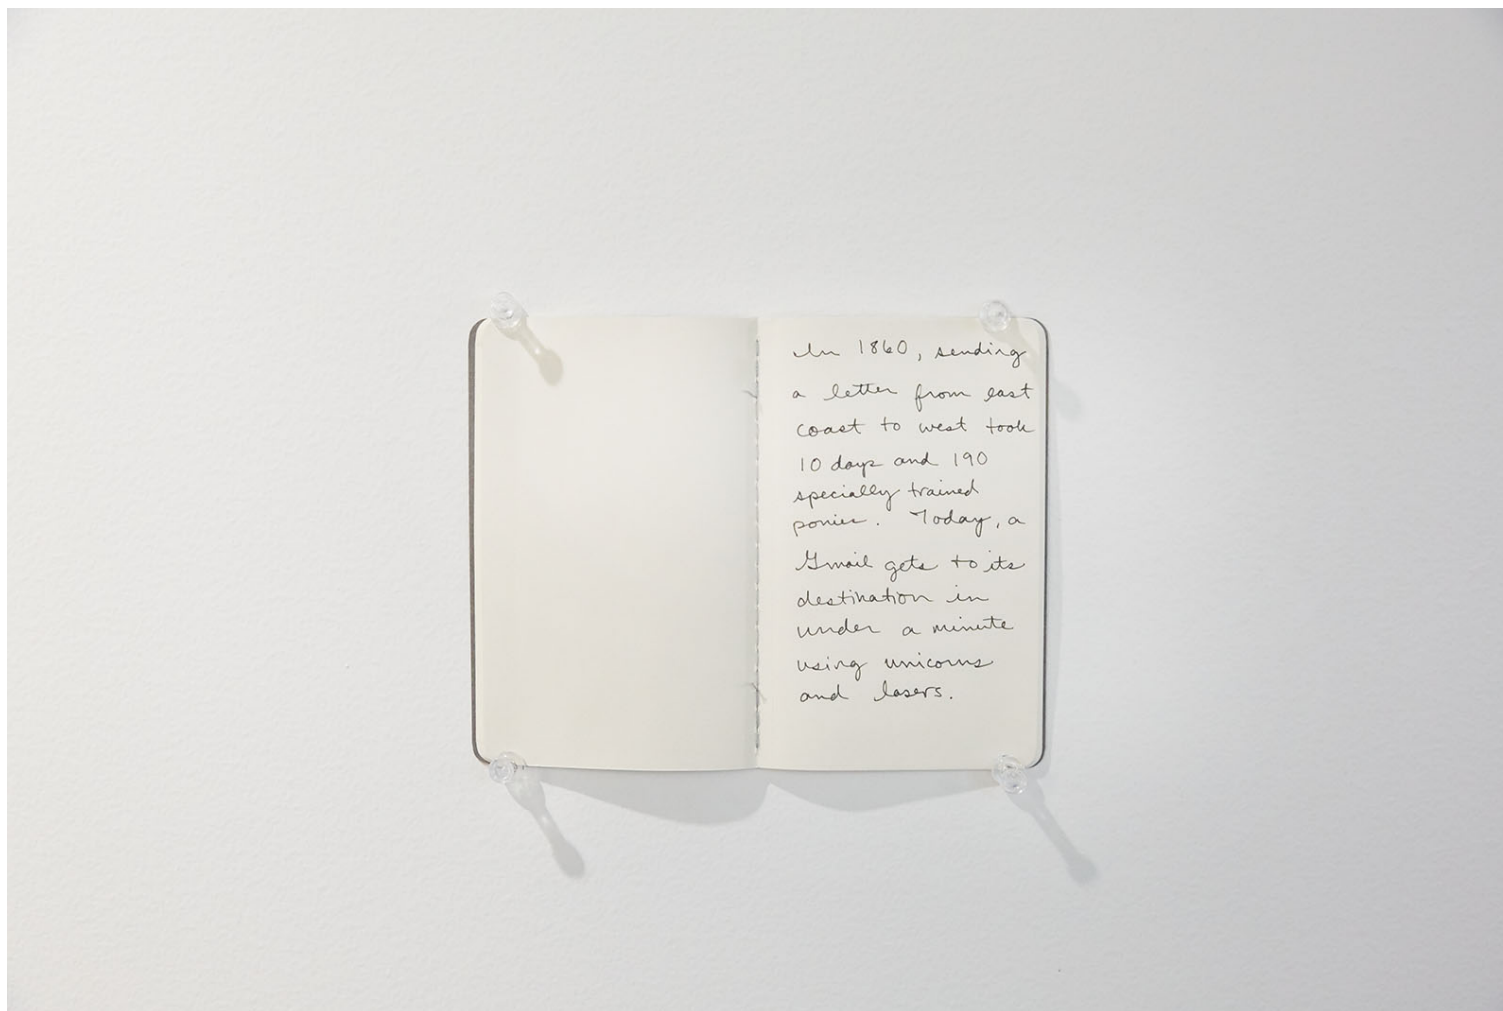 In 1860, sending
a letter from east
coast to west took
10 days and 190
specially trained
ponies. Today, a
Gmail gets to its
destination in
under a minute
using unicorns
and lasers.